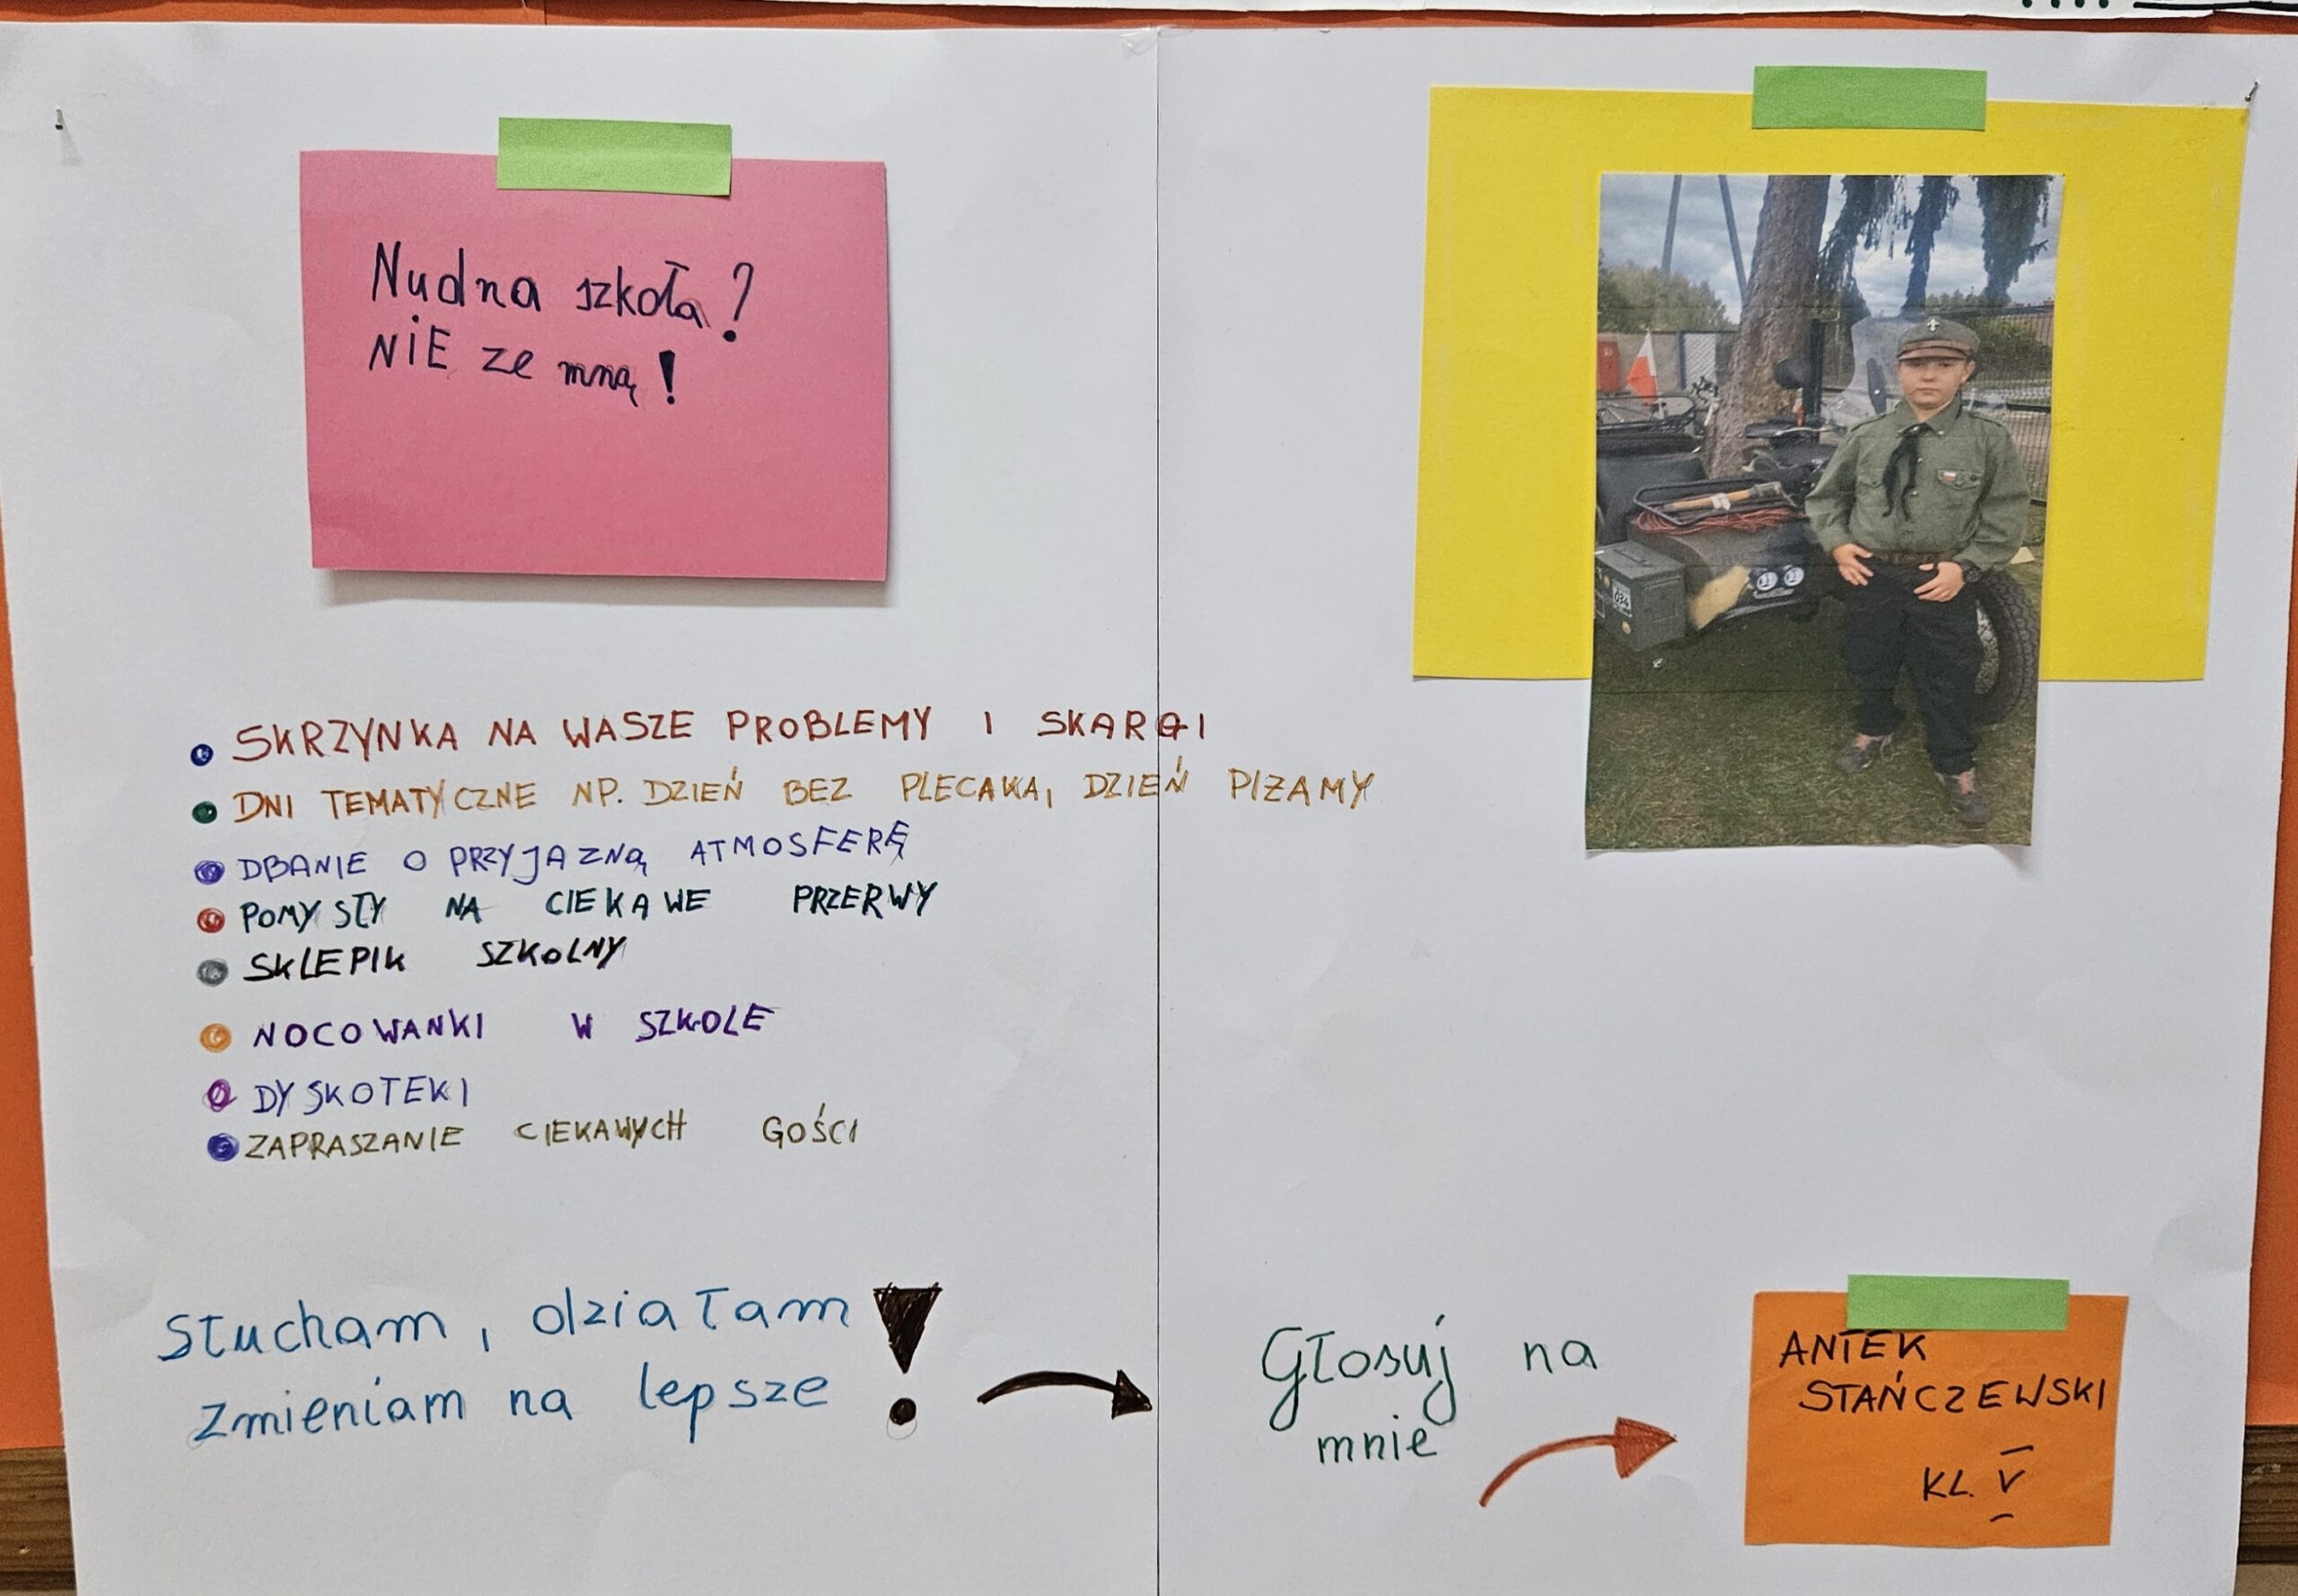 Nudna szkoła?
NiE ze mną!
SKRZYNKA NA WASZE PROBLEMY I SKARGI
DNI TEMATYCZNE NP. DZIEŃ BEZ PLECAKA, DZIEŃ PIZAMY
DBANIE O PRZYJAZNĄ ATMOSFERĘ
POMYSŁY NA CIEKAWE PRZERWY
SKLEPIK SZKOLNY
NOCOWANKI W SZKOLE
DYSKOTEKI
ZAPRASZANIE CIEKAWYCH GOŚCI
Słucham, działam
zmieniam na lepsze!
Głosuj na
mnie
ANTEK
STAŃCZEWSKI
KL. V